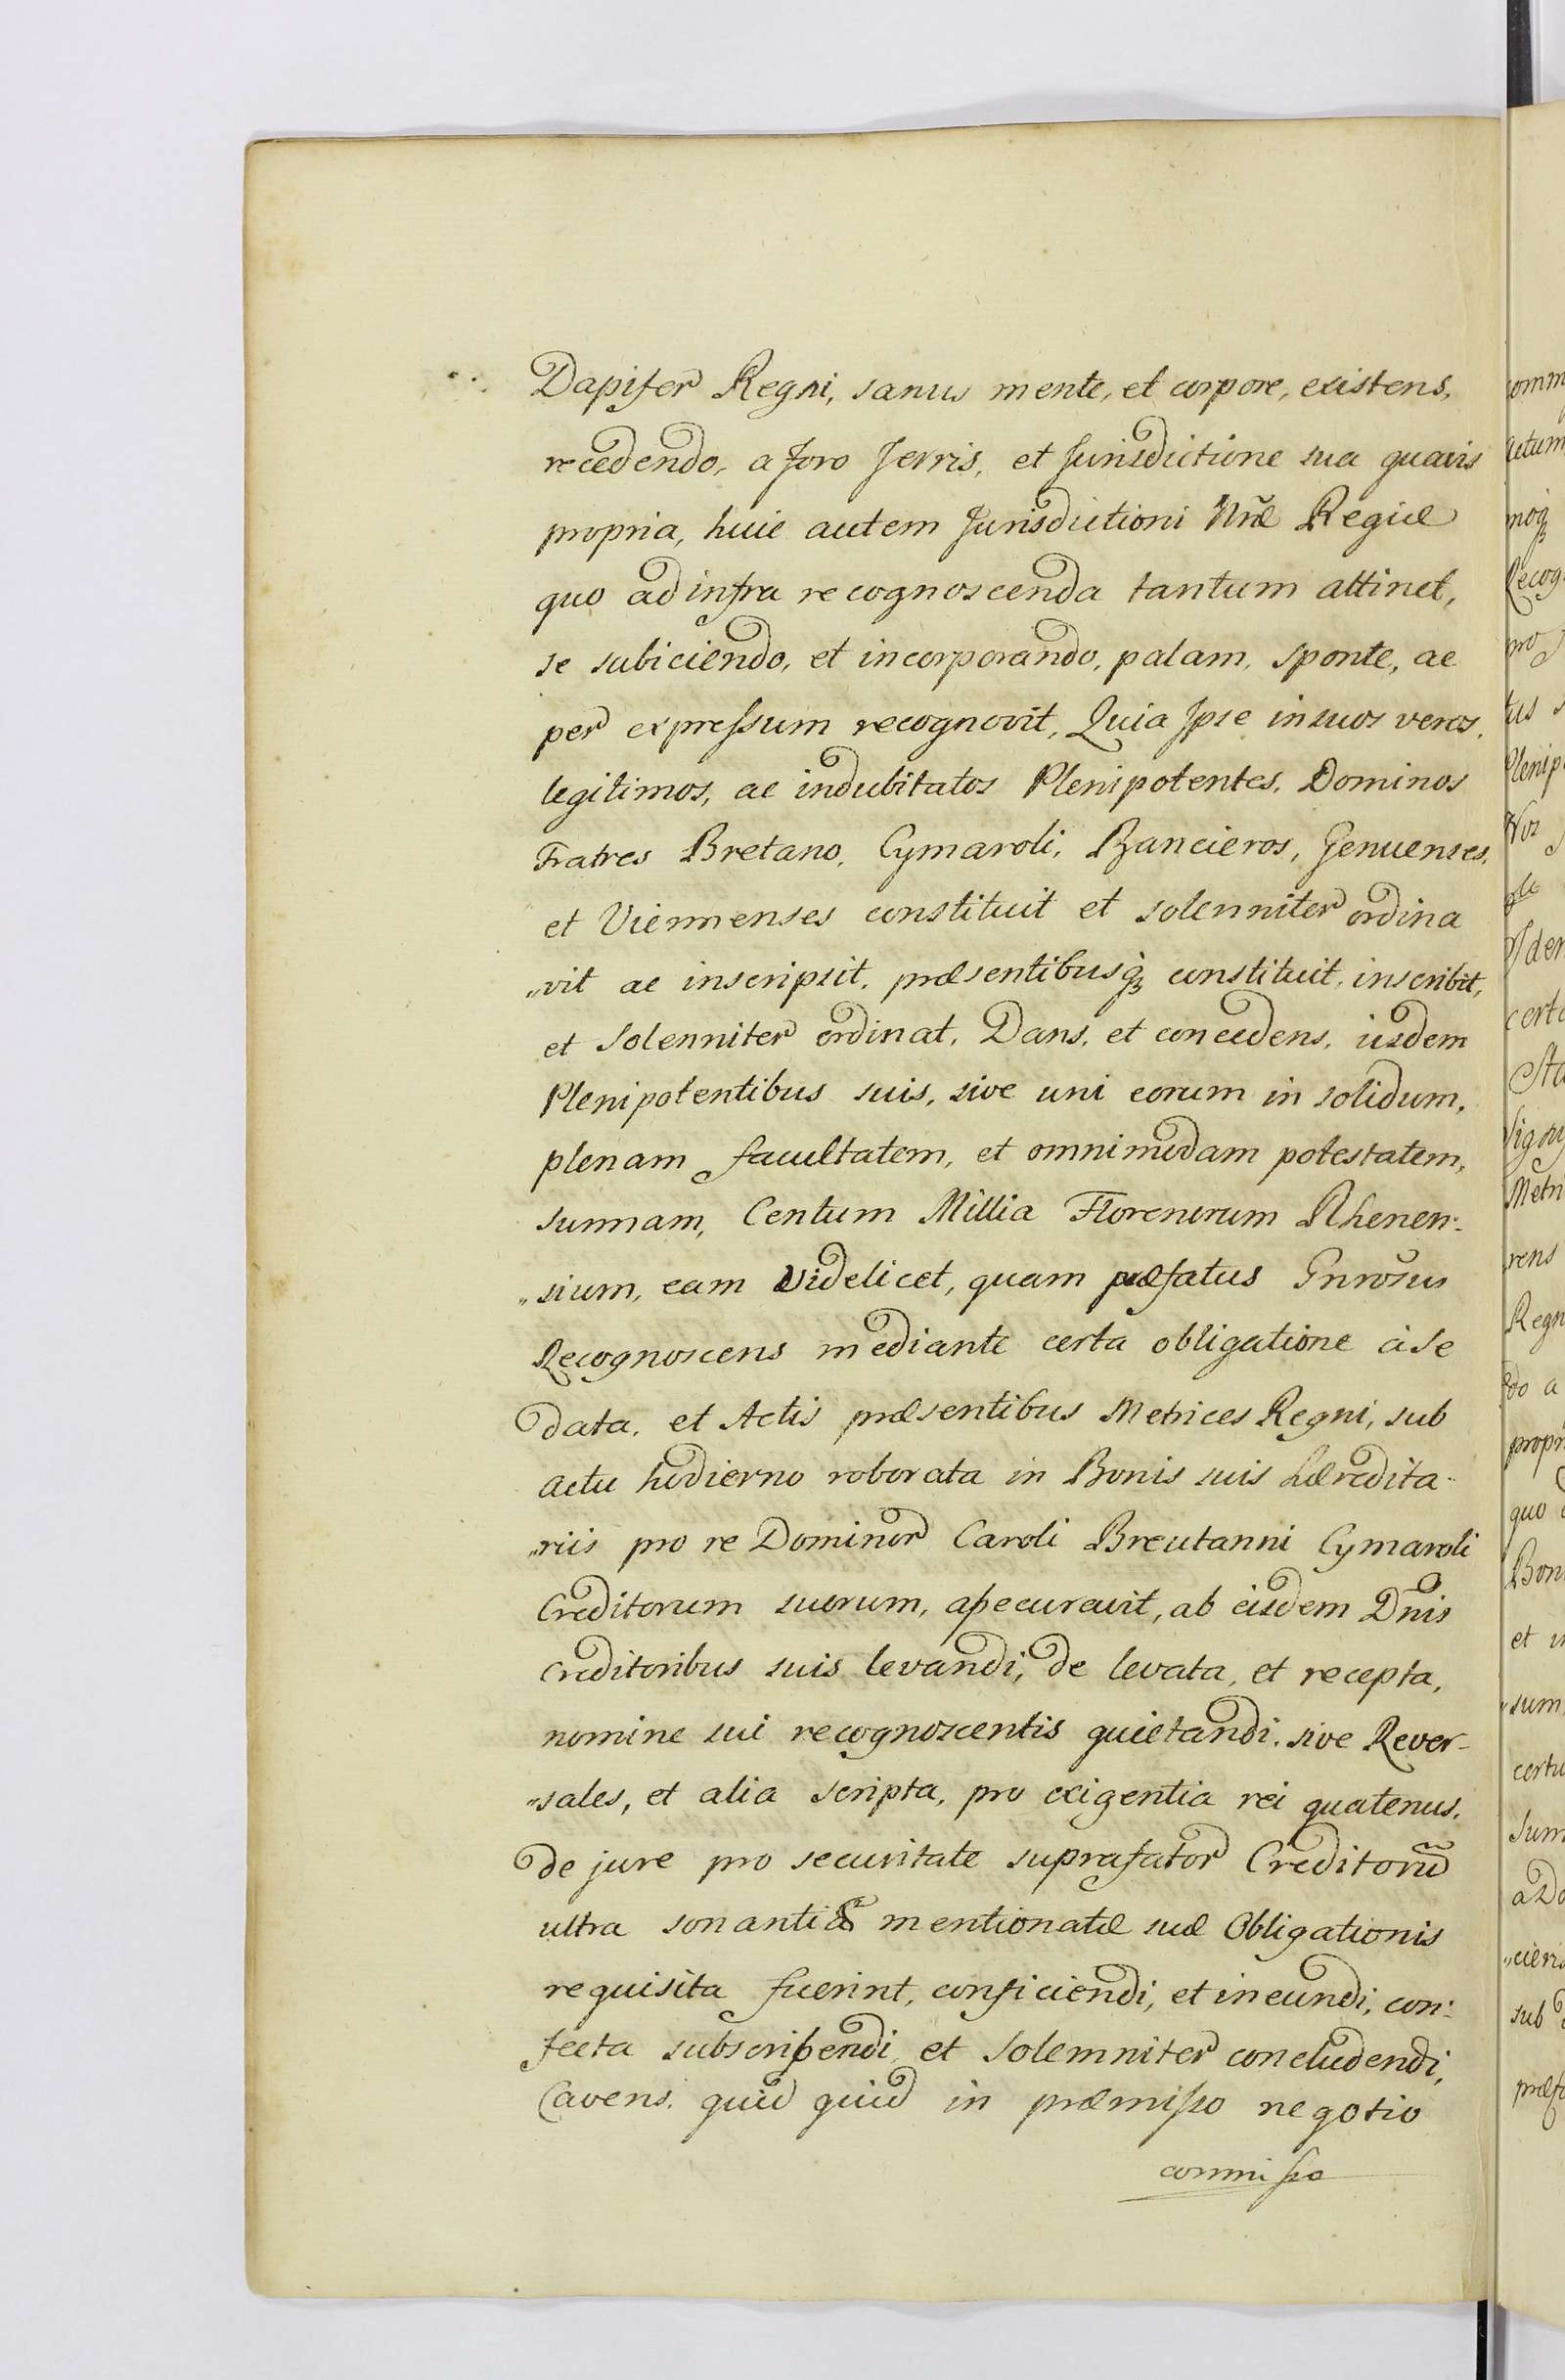 Dapifer Regni, sanus mente, et corpore, existens,
recedendo, a foro Terris, et Jurisdictione sua quavis
propria, huic autem Jurisdictioni Nræ Regiæ
quo ad infra recognoscenda tantum attinet,
se subiciendo, et incorporando, palam, sponte, ac
per expressum recognovit, Quia Ipse in suos veros,
legitimos, ac indubitatos Plenipotentes, Dominos
Fratres Bretano, Cymaroli, Bancieros, Genuenses,
et Viennenses constituit et solenniter ordina
„vit ac inscripsit, præsentibusq3 constituit, inscribit,
et Solenniter ordinat, Dans, et concedens, iisdem
Plenipotentibus suis, sive uni eorum in solidum,
plenam facultatem, et omnimodam potestatem,
summam, Centum Millia Florenorum Rhenen-
„sium, eam videlicet, quam præfatus Gnrosus
Recognoscens mediante certa obligatione à Se
data, et Actis præsentibus Metrices Regni, sub
actu hodierno roborata in Bonis suis hæredita-
„riis pro re Dominor Caroli Breutanni Cymaroli
Creditorum suorum, assecuravit, ab eisdem Dnis
Creditoribus suis levandi, de levata, et recepta,
nomine sui recognoscentis quietandi, sive Rever-
„sales, et alia scripta, pro exigentia rei quatenus,
de jure pro securitate suprafator Creditorũ
ultra sonantiã mentionatæ suæ Obligationis
requisita fuerint, conficiendi, et ineundi, con-
fecta subscribendi, et Solemniter concludendi,
Cavens, quid quid in præmisso negotio
commisso